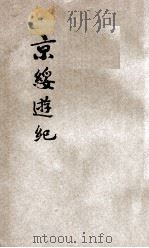 京綏遊紀
mtoou.info